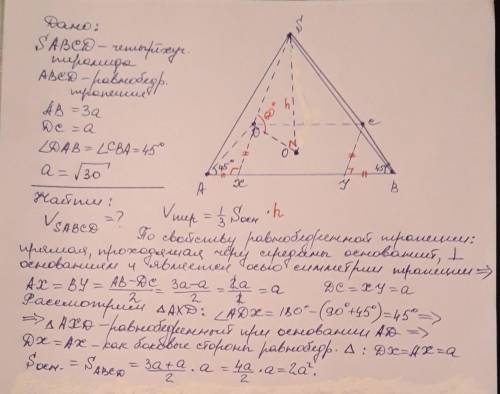 Дано:
SABCD – четырёхуг.
пирамида
ABCD – равнобедр.
трапеция
AB = 3a
DC = a
∠DAB = ∠CBA = 45°
a = √30
Найти:
V_SABCD = ?
V_пир = 1/3 S_осн · h
S
h
90°
D
C
O
45°
45°
A
X
Y
B
По свойству равнобедренной трапеции:
прямая, проходящая через середины оснований, ⊥
основаниям и является осью симметрии трапеции ⇒
AX = BY = (AB-DC)/2 = (3a-a)/2 = 2a/2 = a DC = XY = a
Рассмотрим △AXD: ∠ADX = 180° - (90°+45°) = 45° ⇒
⇒ △AXD – равнобедренный при основании AD ⇒
DX = AX – как боковые стороны равнобедр. △: DX = AX = a
S_осн. = S_ABCD = (3a+a)/2 · a = 4a/2 · a = 2a².